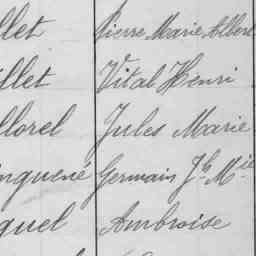 llet Pierre Marie Albert
llet Vital Henri
llorel Jules Marie
nguené Germain Jh Mie
guel Ambroise